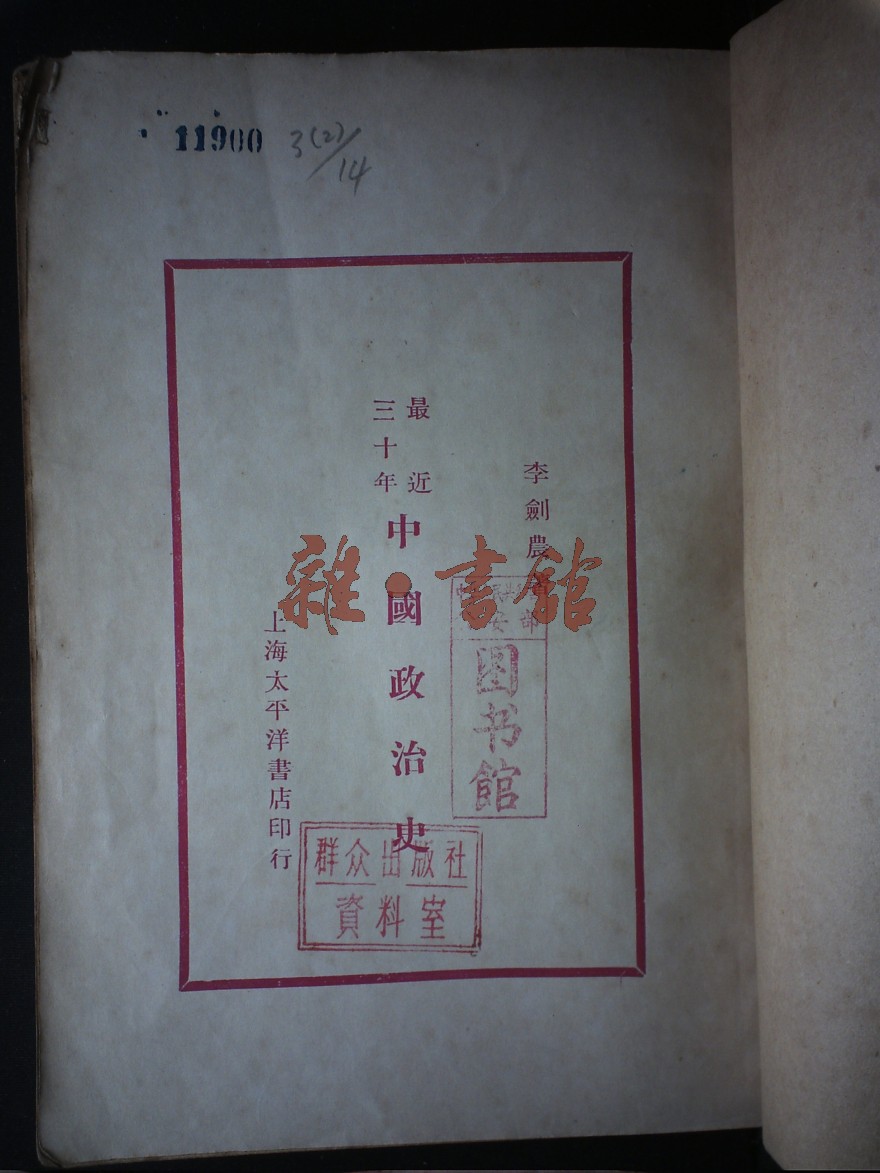 11900
3(2)/14
李劍農著
最近
三十年
中國政治史
上海太平洋書店印行
雜·書館
图书馆
群众出版社
資料室